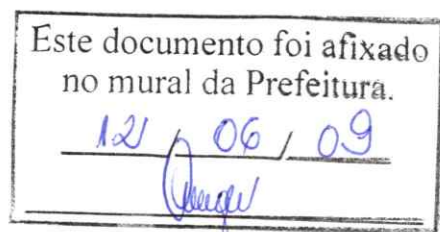 Este documento foi afixado
no mural da Prefeitura.
12 / 06 / 09